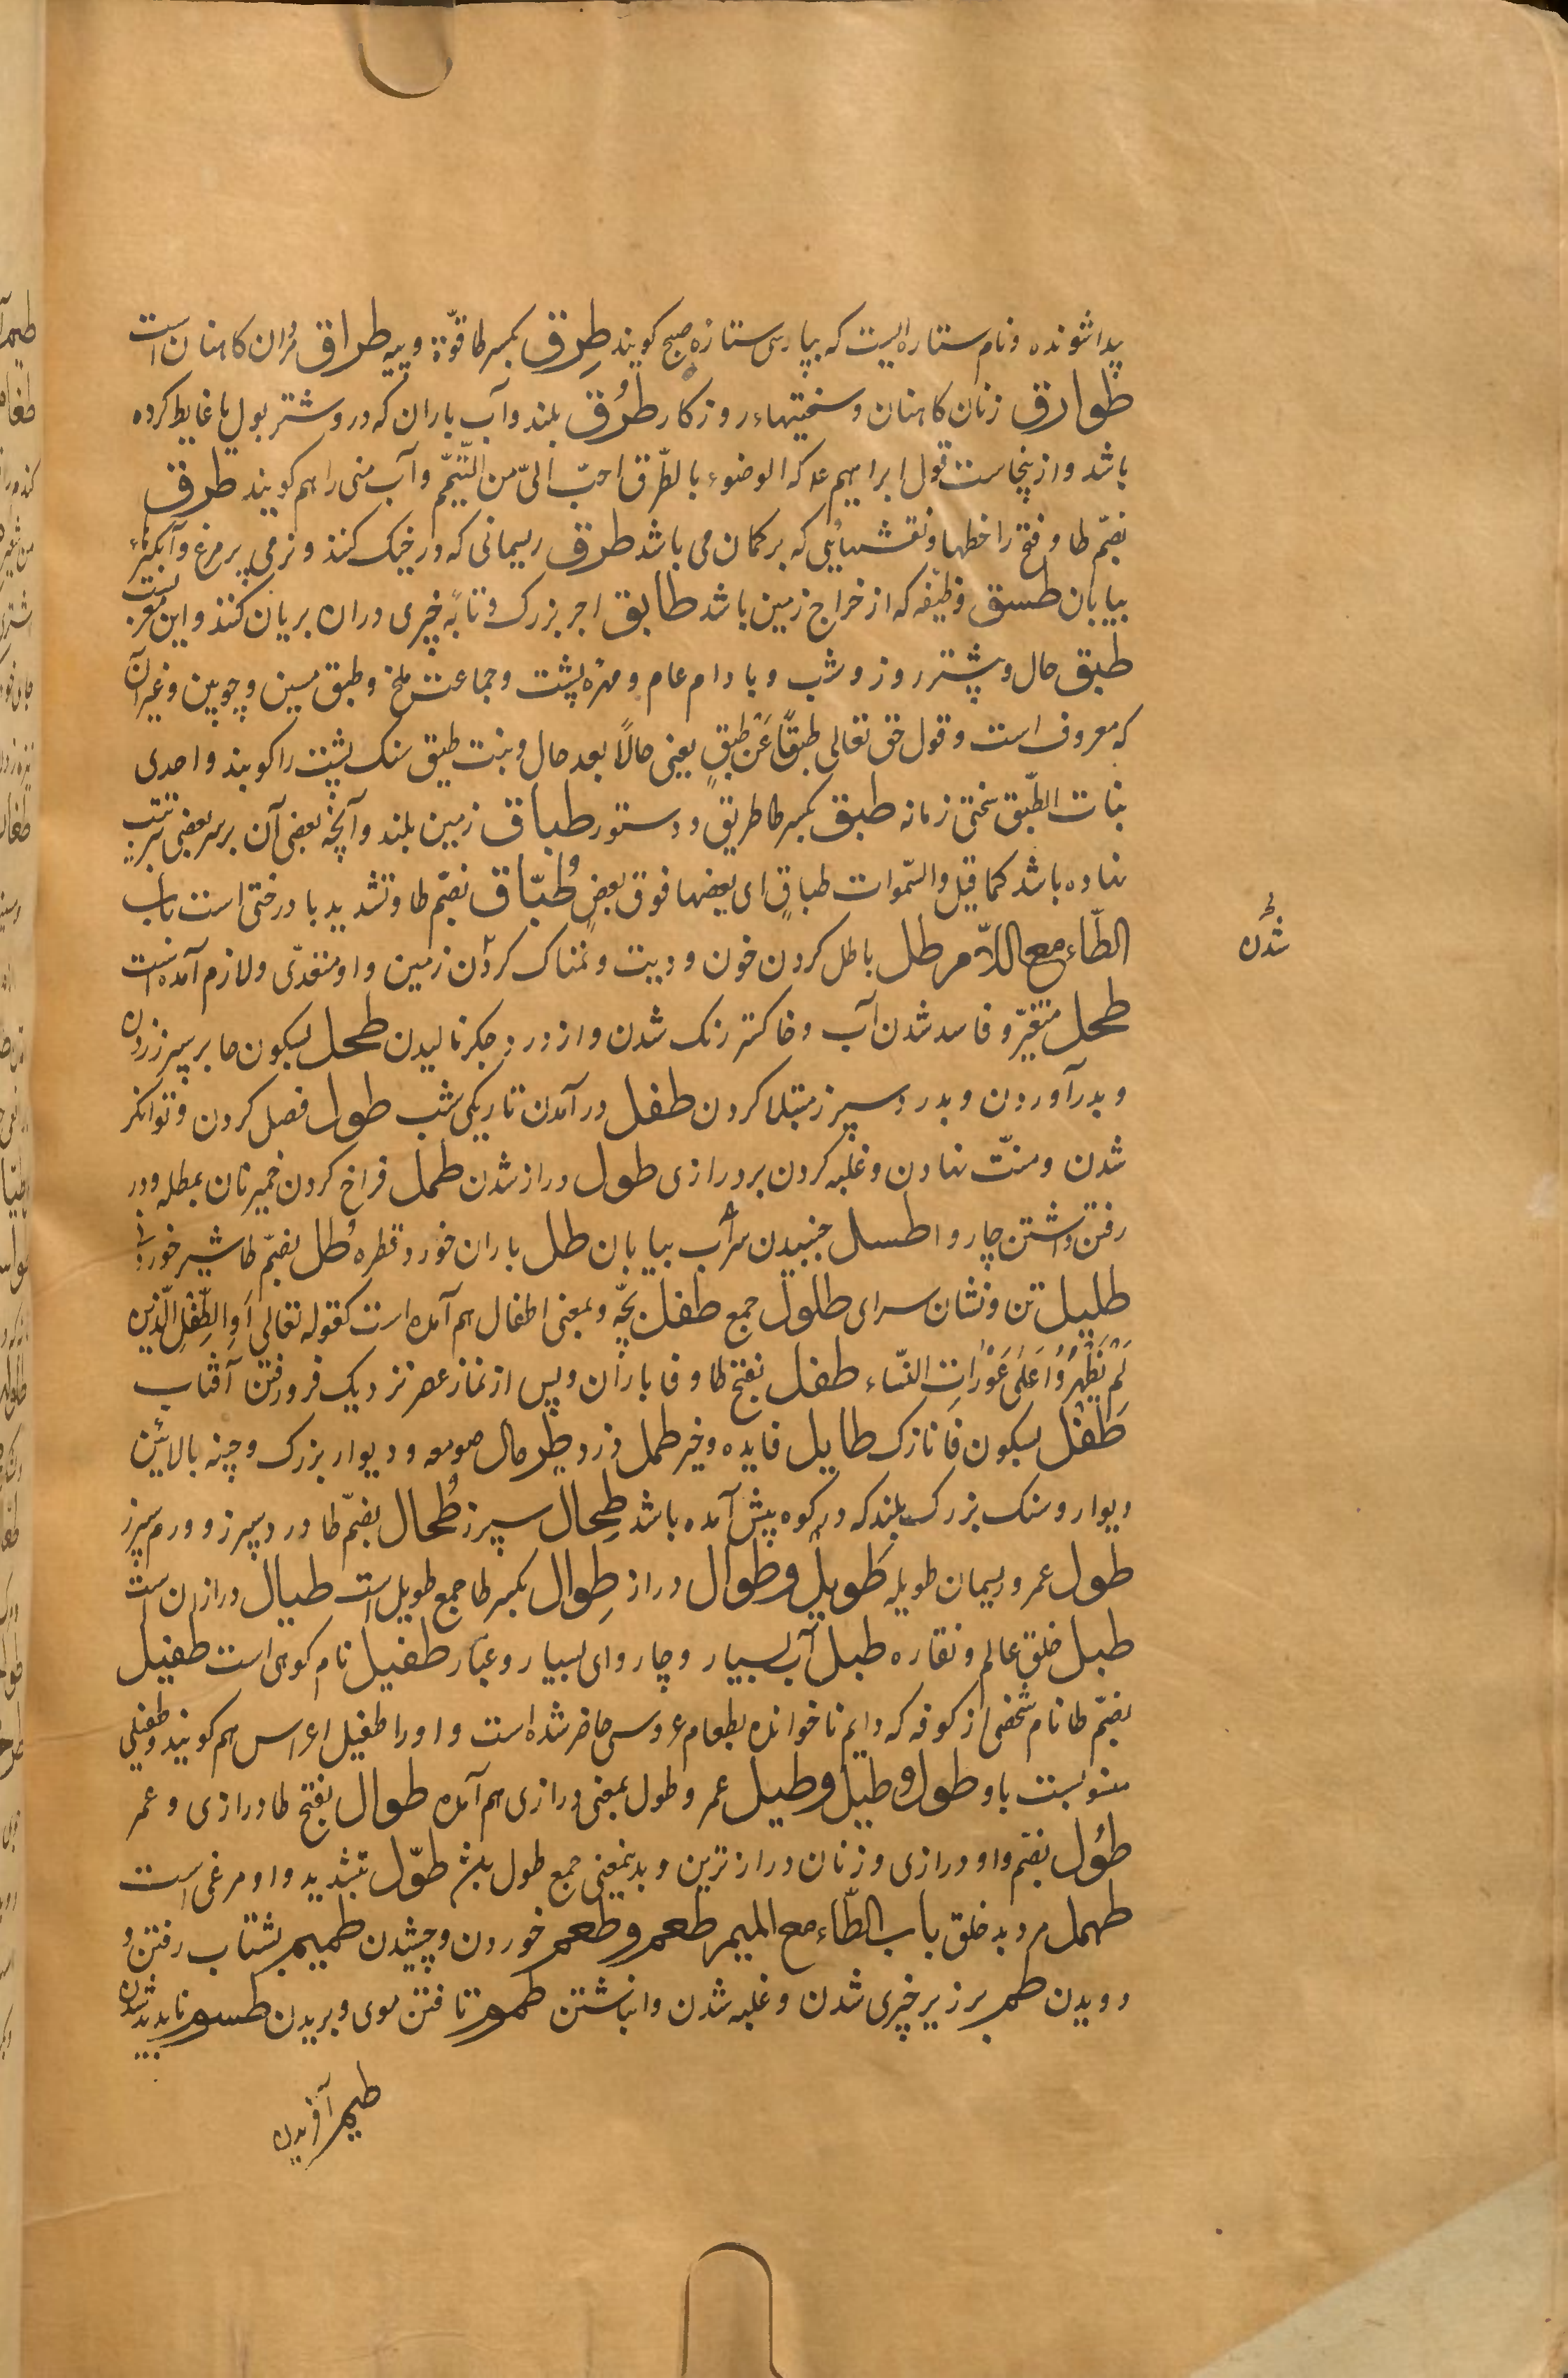 پیدا شونده و نام ستاره ایست که بپارسی ستارهٔ صبح کویند طِرق بکسر طا قوّة و پیه طراق مُران کاهنان است
طوارق زنان کاهنان و سختیهاء روزکار طرُق بلند و آب باران که درو شتر بول یا غایط کرده
باشد و ازینجاست قول ابراهیم عم که الوضوء بالطّرق احبّ الیّ من التّیمّم و آب منی را هم کویند طرق
بضمّ طا و فتح را خطها و نقشهایی که بر کمان می باشد طرق ریسمانی که در خیک کنند و نرمی پر مرغ و آبکیرهاء
بیابان طسق وظیفه که از خراج زمین باشد طابق اجر بزرک و تابهٔ چیزی دران بریان کنند و این معربست
طبق حال و پشتر روز و شب و بادام عام و مهرهٔ پشت و جماعت ملخ و طبق مسین و چوبین و غیر آن
که معروف است و قول حق تعالی طبقًا عَن طبقٍ یعنی حالًا بعد حال و بنت طبق سنک پشت را کویند و احدی
بنات الطّبق سختی زمانه طبق بکسر طا طریق و دستور طباق زمین بلند و آنچه بعضی آن بر سر بعضی بترتیب
نهاده باشد کما قیل و السّموات طباقٍ ای بعضها فوق بعضٍ طُبّاق بضمّ طا و تشدید با درختی است باب
الطّاء مع اللّام طل باطل کردن خون و دیت و نمناک کردن زمین و او متعدّی و لازم آمده است
طحل متغیّر و فاسد شدن آب و خاکستر رنک شدن و از درد جکر نالیدن طحل بسکون حا بر سپرز زدن
و بدر آوردن و بدرد سپرز مبتلا کردن طفل در آمدن تاریکی شب طول فصل کردن و توانکر
شدن و منّت نهادن و غلبه کردن بر درازی طول دراز شدن طمل فراخ کردن خمیر نان بمطله و در
رفتن داشتن چاروا طسل جنبیدن سراب بیابان طل باران خورد قطره طُل بضمّ طا شیر خوردنی
طلیل تن و نشان سرای طلول جمع طفل بچّه و بمعنی اطفال هم آمده است کقوله تعالی اَوِ الطِّفْلِ الَّذِینَ
لَمْ یَظْهَرُوْا عَلٰی عَوْرَاتِ النّساء طفل بفتح طا و فا باران و پس از نماز عصر نزدیک فرو رفتن آفتاب
طَفْل بسکون فا نازک طایل فایده و خیر طمل دزد طربال صومعه و دیوار بزرک و چینه بالائین
دیوار و سنک بزرک بلند که در کوه پیش آمده باشد طِحال سپرز طُحال بضمّ طا درد سپرز و ورم سپرز
طول عمر و ریسمان طویله طَوِیل و طوال دراز طِوال بکسر طا جمع طویل است طیال درازان ست
طبل خلق عالم و نقاره طبل آب بسیار و چاروای بسیار و غبار طفیل نام کوهی است طفیل
بضمّ طا نام شخصی از کوفه که دایم ناخوانده بطعام عروسی حاضر شده است و او را طفیل اعراس هم کویند و طفیلی
منسوبست باو طول و طیل و طیل عمر و طول بمعنی درازی هم آمده طوال بفتح طا درازی و عمر
طوُل بضمّ واو درازی و زنان درازترین و بدینمعنی جمع طول باشد طوّل بتشدید واو مرغی است
طهمل مرد بد خلق باب الطّاء مع المیم طعم و طعم خوردن و چشیدن طمیم بشتاب رفتن و
دویدن طم بر زیر چیزی شدن و غلبه شدن و انباشتن طموم تافتن موی و بریدن طسوم ناپدید شدن
طیم آفریدن
شدن